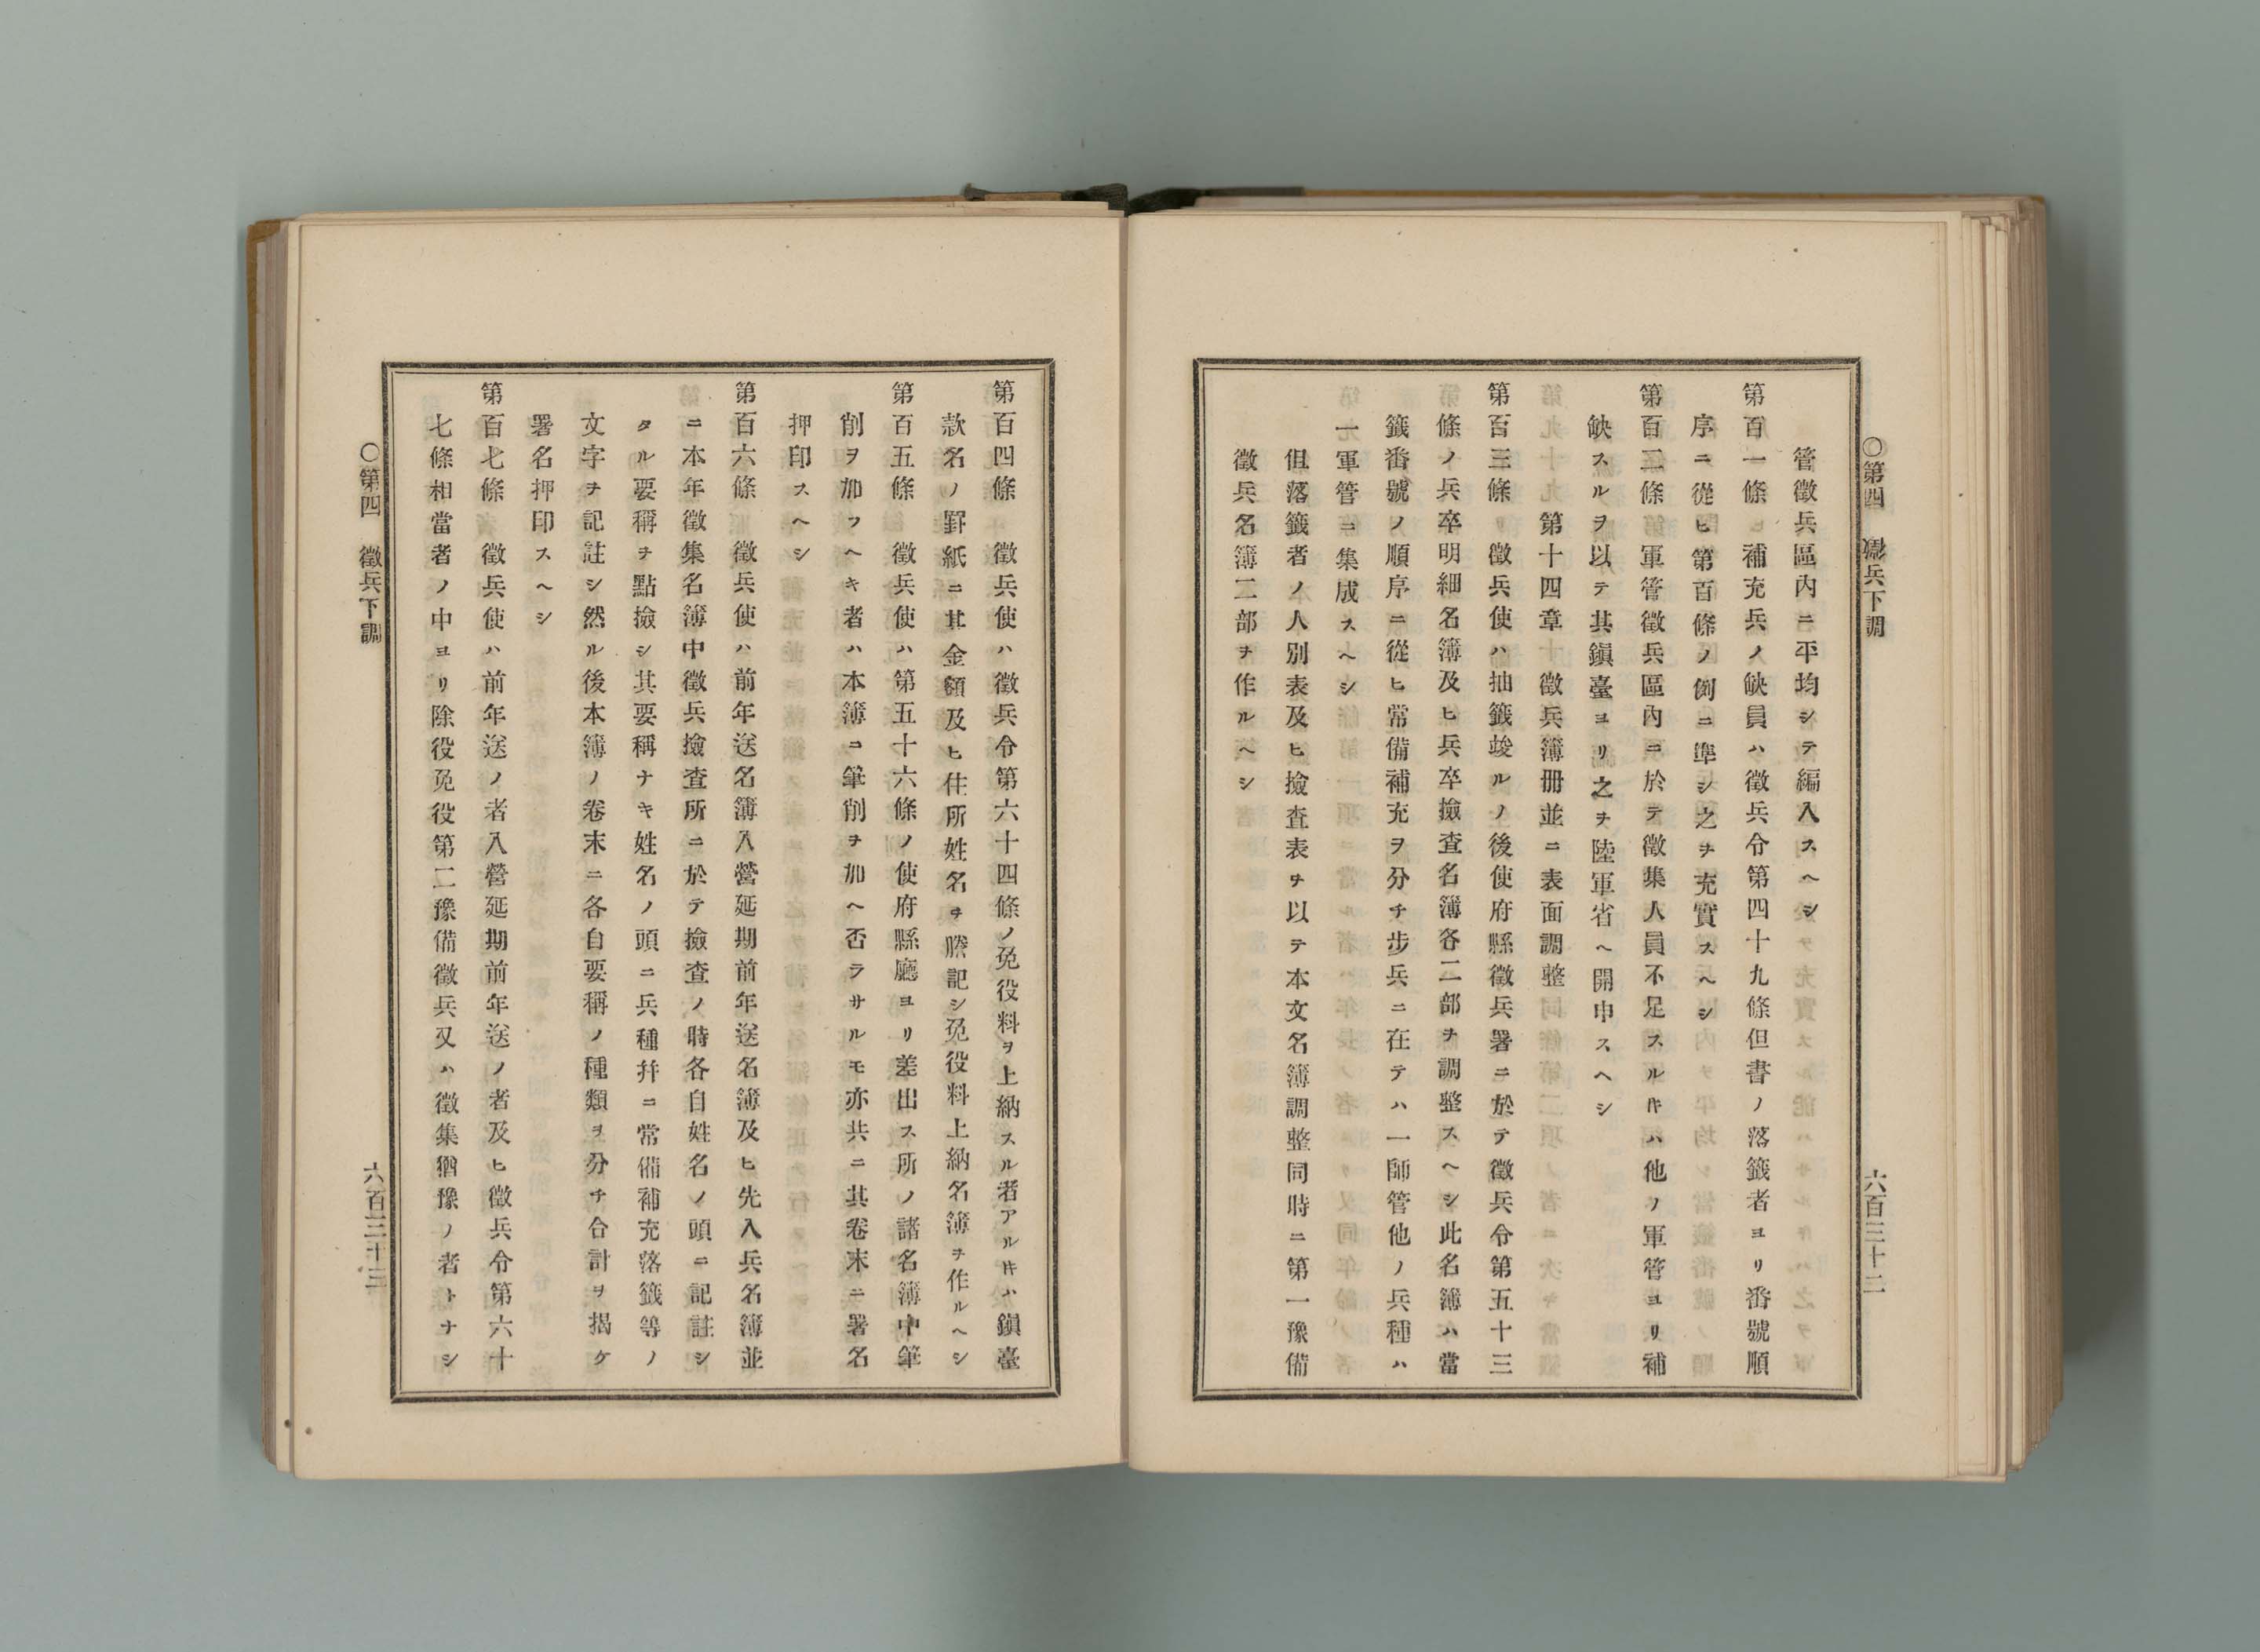 〇第四　徵兵下調
六百三十二
管徵兵區內ニ平均シテ編入スヘシ
第百一條　補充兵ノ缺員ハ徵兵令第四十九條但書ノ落籤者ヨリ番號順
序ニ從ヒ第百條ノ例ニ準シ之ヲ充實スヘシ
第百二條　軍管徵兵區內ニ於テ徵集人員不足スルヰハ他ノ軍管ヨリ補
缺スルヲ以テ其鎭臺ヨリ之ヲ陸軍省ヘ開申スヘシ
第十四章　徵兵簿冊並ニ表面調整
第百三條　徵兵使ハ抽籤竣ルノ後使府縣徵兵署ニ於テ徵兵令第五十三
條ノ兵卒明細名簿及ヒ兵卒撿査名簿各二部ヲ調整スヘシ此名簿ハ當
籤番號ノ順序ニ從ヒ常備補充ヲ分チ步兵ニ在テハ一師管他ノ兵種ハ
一軍管ニ集成スヘシ
但落籤者ノ人別表及ヒ撿査表ヲ以テ本文名簿調整同時ニ第一豫備
徵兵名簿二部ヲ作ルヘシ
第百四條　徵兵使ハ徵兵令第六十四條ノ免役料ヲ上納スル者アルヰハ鎭臺
款名ノ罫紙ニ其金額及ヒ住所姓名ヲ謄記シ免役料上納名簿ヲ作ルヘシ
第百五條　徵兵使ハ第五十六條ノ使府縣廳ヨリ差出ス所ノ諸名簿中筆
削ヲ加フヘキ者ハ本簿ニ筆削ヲ加ヘ否ラサルモ亦共ニ其卷末ニ署名
押印スヘシ
第百六條　徵兵使ハ前年送名簿入營延期前年送名簿及ヒ先入兵名簿並
ニ本年徵集名簿中徵兵撿査所ニ於テ撿査ノ時各自姓名ノ頭ニ記註シ
タル要稱ヲ點撿シ其要稱ナキ姓名ノ頭ニ兵種幷ニ常備補充落籤等ノ
文字ヲ記註シ然ル後本簿ノ卷末ニ各自要稱ノ種類ヲ分チ合計ヲ揭ケ
署名押印スヘシ
第百七條　徵兵使ハ前年送ノ者入營延期前年送ノ者及ヒ徵兵令第六十
七條相當者ノ中ヨリ除役免役第二豫備徵兵又ハ徵集猶豫ノ者トナシ
〇第四　徵兵下調
六百三十三